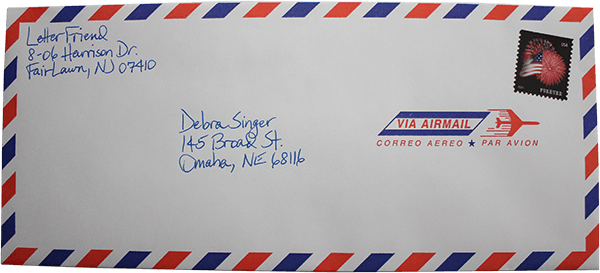 Letter Friend
8-06 Harrison Dr.
Fair Lawn, NJ 07410
USA
FOREVER
Debra Singer
145 Broad St.
Omaha, NE 68116
VIA AIRMAIL
CORREO AEREO ★ PAR AVION